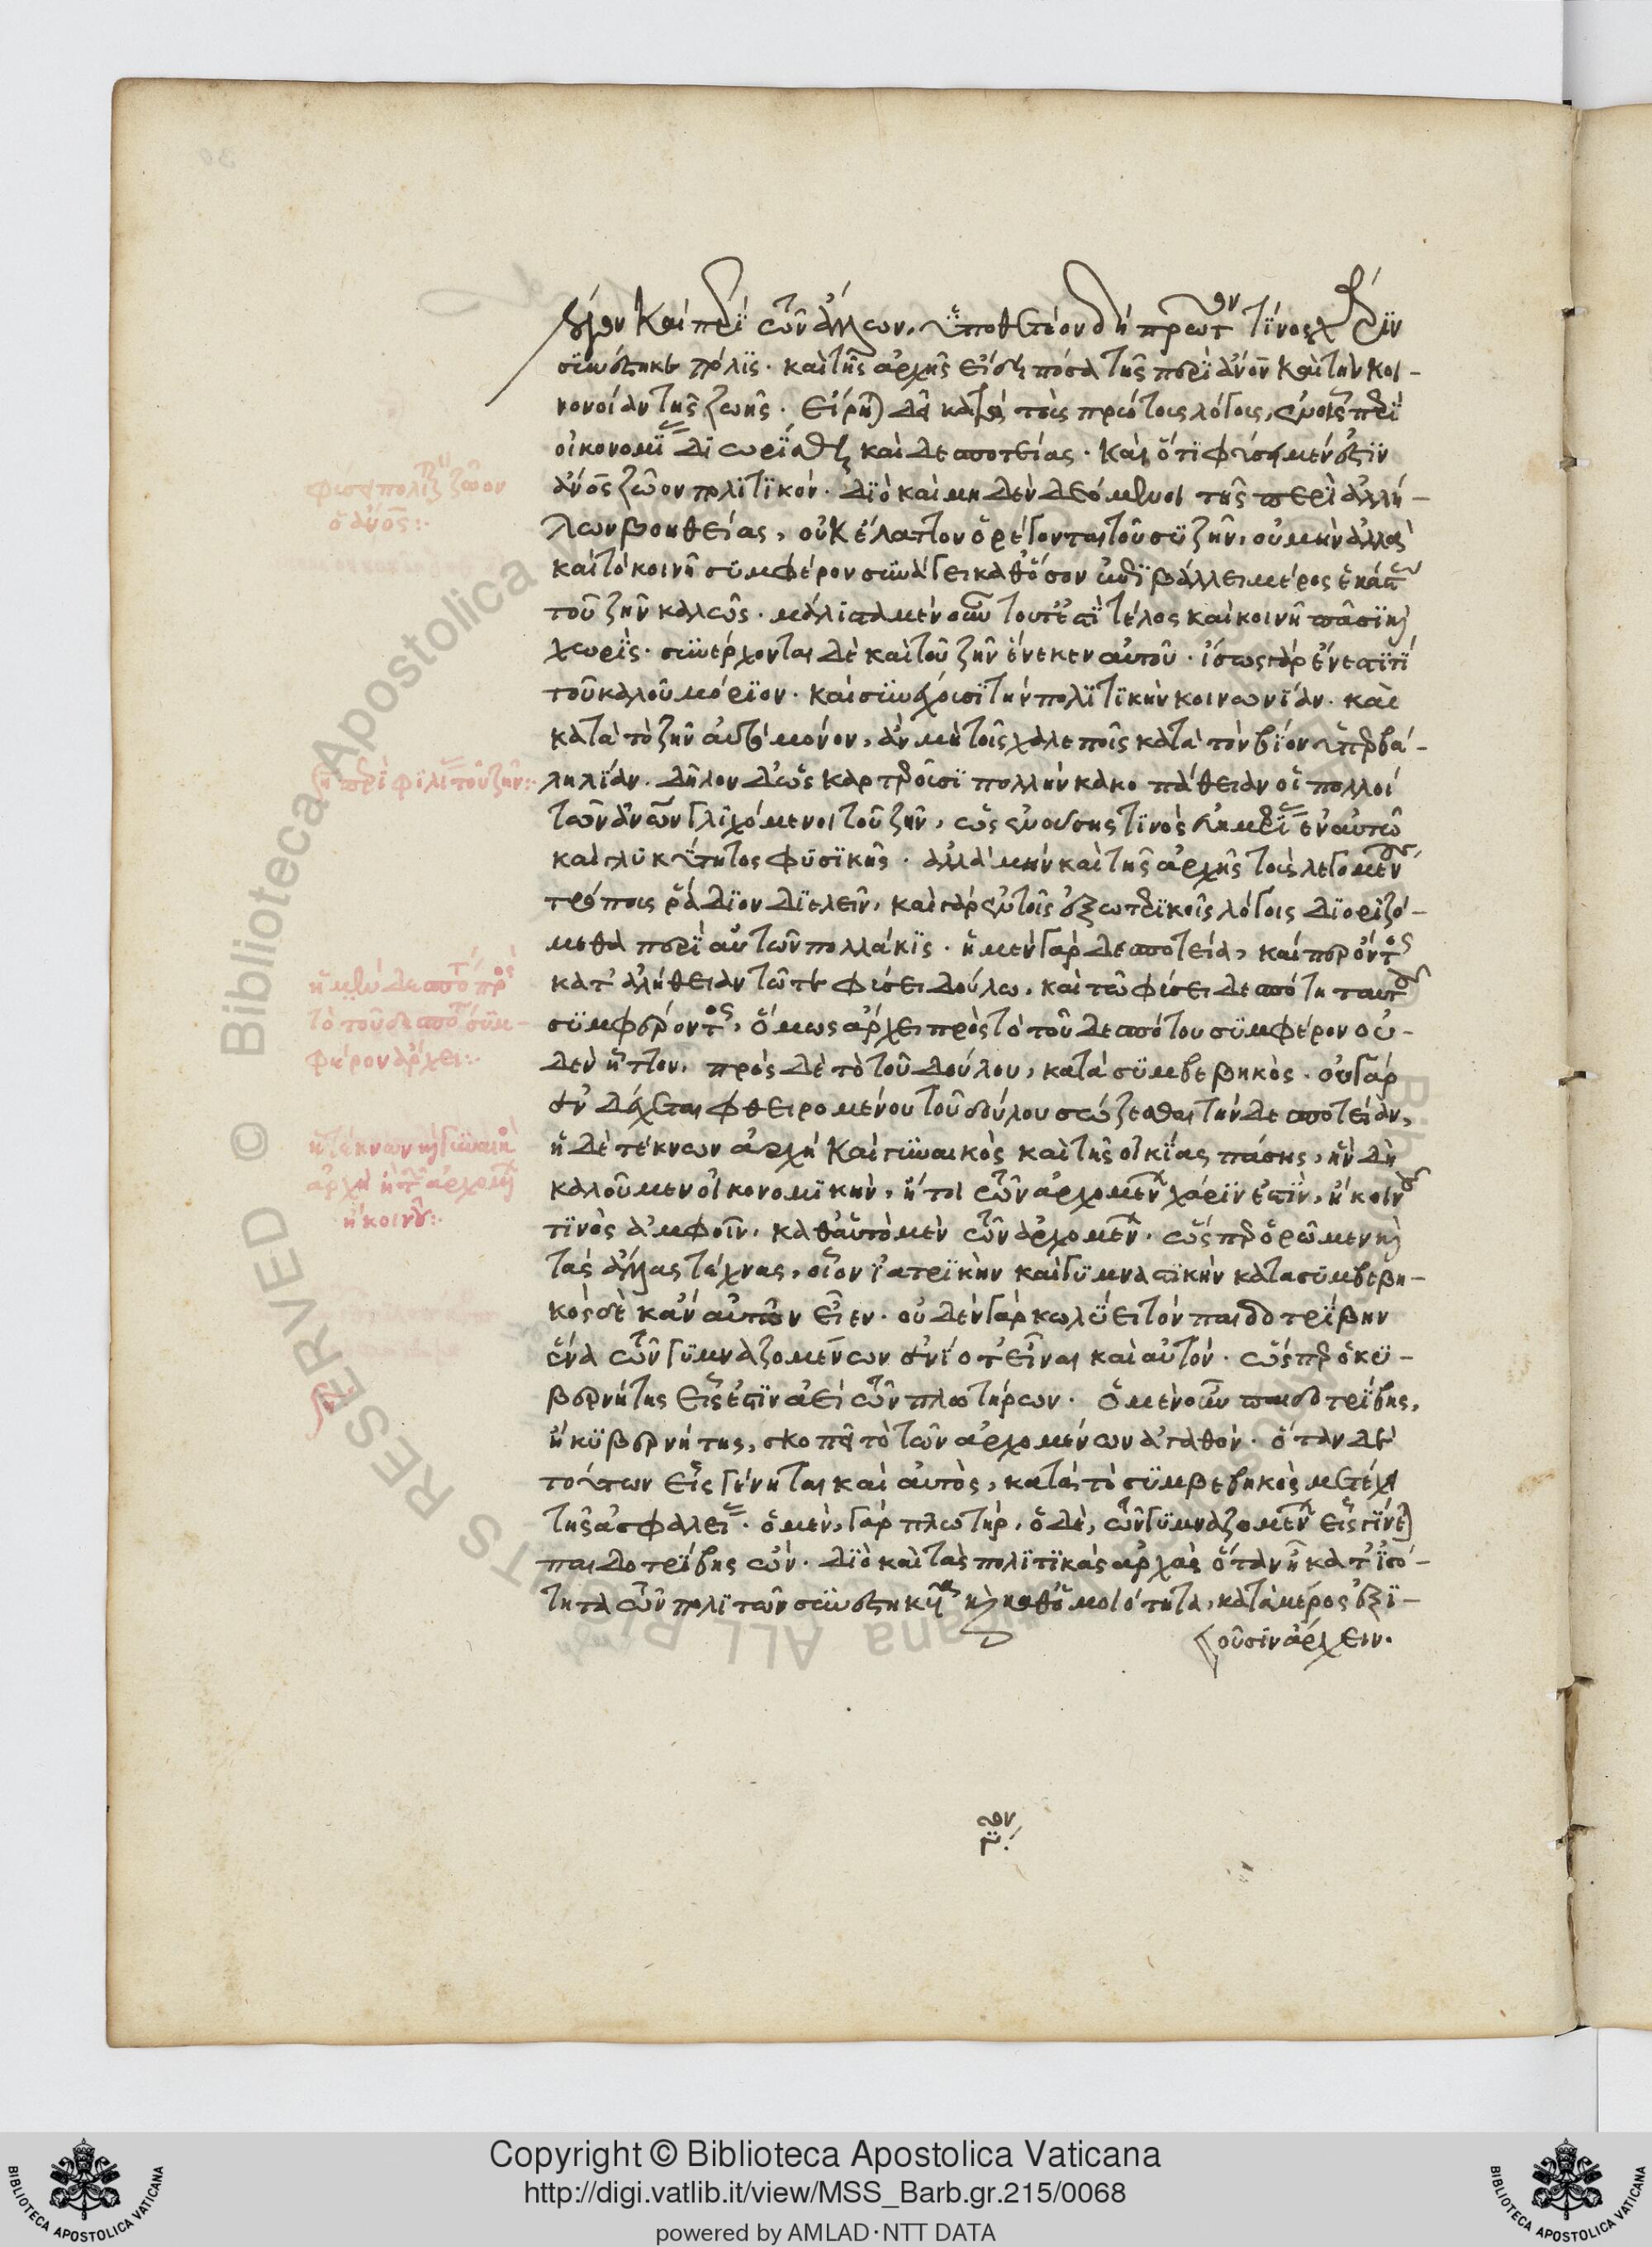 λόγον καὶ περὶ τῶν ἄλλων. ὑποθετέον δὴ πρῶτον τίνος χάριν
συνέστηκε πόλις. καὶ τῆς ἀρχῆς εἴδη πόσα τῆς περὶ ἄνον καὶ τὴν κοι-
νωνίαν τῆς ζωῆς. εἴρηται δὴ κατὰ τοὺς πρώτους λόγους, ἐν οἷς περὶ
οἰκονομίας διωρίσθη καὶ δεσποτείας. καὶ ὅτι φύσει μέν ἐστιν
ἄνος ζῶον πολιτικόν. διὸ καὶ μηδὲν δεόμενοι τῆς περὶ ἀλλή-
λων βοηθείας, οὐκ ἔλαττον ὀρέγονται τοῦ συζῆν. οὐ μὴν ἀλλὰ
καὶ τὸ κοινῇ συμφέρον συνάγει καθόσον ἐπιβάλλει μέρος ἑκάστῳ
τοῦ ζῆν καλῶς. μάλιστα μὲν οὖν τοῦτ' ἐστὶ τέλος καὶ κοινῇ πᾶσι καὶ
χωρίς. συνέρχονται δὲ καὶ τοῦ ζῆν ἕνεκεν αὐτοῦ. ἴσως γὰρ ἔνεστί τι
τοῦ καλοῦ μόριον. καὶ συνέχουσι τὴν πολιτικὴν κοινωνίαν. καὶ
κατὰ τὸ ζῆν αὐτὸ μόνον, ἂν μὴ τοῖς χαλεποῖς κατὰ τὸν βίον ὑπερβά-
λῃ λίαν. δῆλον δ' ὡς καρτεροῦσι πολλὴν κακοπάθειαν οἱ πολλοὶ
τῶν ἀνων γλιχόμενοι τοῦ ζῆν, ὡς ἐνούσης τινὸς εὐημερίας ἐν αὐτῷ
καὶ γλυκύτητος φυσικῆς. ἀλλὰ μὴν καὶ τῆς ἀρχῆς τοὺς λεγομένους
τρόπους ῥάδιον διελεῖν. καὶ γὰρ ἐν τοῖς ἐξωτερικοῖς λόγοις διοριζό-
μεθα περὶ αὐτῶν πολλάκις. ἡ μὲν γὰρ δεσποτεία, καίπερ ὄντος
κατ' ἀλήθειαν τῷ τε φύσει δούλῳ. καὶ τῷ φύσει δεσπότῃ ταυτοῦ
συμφέροντος, ὅμως ἄρχει πρὸς τὸ τοῦ δεσπότου συμφέρον οὐ-
δὲν ἧττον. πρὸς δὲ τὸ τοῦ δούλου, κατὰ συμβεβηκός. οὐ γὰρ
ἐνδέχεται φθειρομένου τοῦ δούλου σώζεσθαι τὴν δεσποτείαν,
ἡ δὲ τέκνων ἀρχὴ καὶ γυναικὸς καὶ τῆς οἰκίας πάσης, ἣν δὴ
καλοῦμεν οἰκονομικήν, ἤτοι τῶν ἀρχομένων χάριν ἐστίν, ἢ κοινοῦ
τινὸς ἀμφοῖν. καθ' αὑτὸ μὲν τῶν ἀρχομένων. ὥσπερ ὁρῶμεν καὶ
τὰς ἄλλας τέχνας, οἷον ἰατρικὴν καὶ γυμναστικὴν κατὰ συμβεβη-
κὸς δὲ κἂν αὐτῶν εἶεν. οὐδὲν γὰρ κωλύει τὸν παιδοτρίβην
ἕνα τῶν γυμναζομένων ἐνίοτ' εἶναι καὶ αὐτόν. ὥσπερ ὁ κυ-
βερνήτης εἷς ἐστὶν ἀεὶ τῶν πλωτήρων. ὁ μὲν οὖν παιδοτρίβης,
ἢ κυβερνήτης, σκοπεῖ τὸ τῶν ἀρχομένων ἀγαθόν. ὅταν δὲ
τούτων εἷς γένηται καὶ αὐτὸς, κατὰ τὸ συμβεβηκὸς μετέχει
τῆς ἀσφαλείας. ὁ μὲν, γὰρ πλωτήρ, ὁ δὲ, τῶν γυμναζομένων εἷς γίνεται
παιδοτρίβης ὤν. διὸ καὶ τὰς πολιτικὰς ἀρχὰς ὅταν ᾖ κατ' ἰσό-
τητα τῶν πολιτῶν συνεστηκυῖα καὶ καθ' ὁμοιότητα, κατὰ μέρος ἀξι-
οῦσιν ἄρχειν.
φύσει πολιτικὸν ζῶον
ὁ ἄνος:
περὶ φιλίας τοῦ ζῆν:
ἡ μὲν δεσποτεία πρὸς
τὸ τοῦ δεσπότου συμ-
φέρον ἄρχει:
ἡ τέκνων καὶ γυναικὸς
ἀρχὴ ἢ τῶν ἀρχομένων
ἢ κοινοῦ:
Copyright © Biblioteca Apostolica Vaticana
http://digi.vatlib.it/view/MSS_Barb.gr.215/0068
powered by AMLAD·NTT DATA
BIBLIOTECA APOSTOLICA VATICANA
BIBLIOTECA APOSTOLICA VATICANA